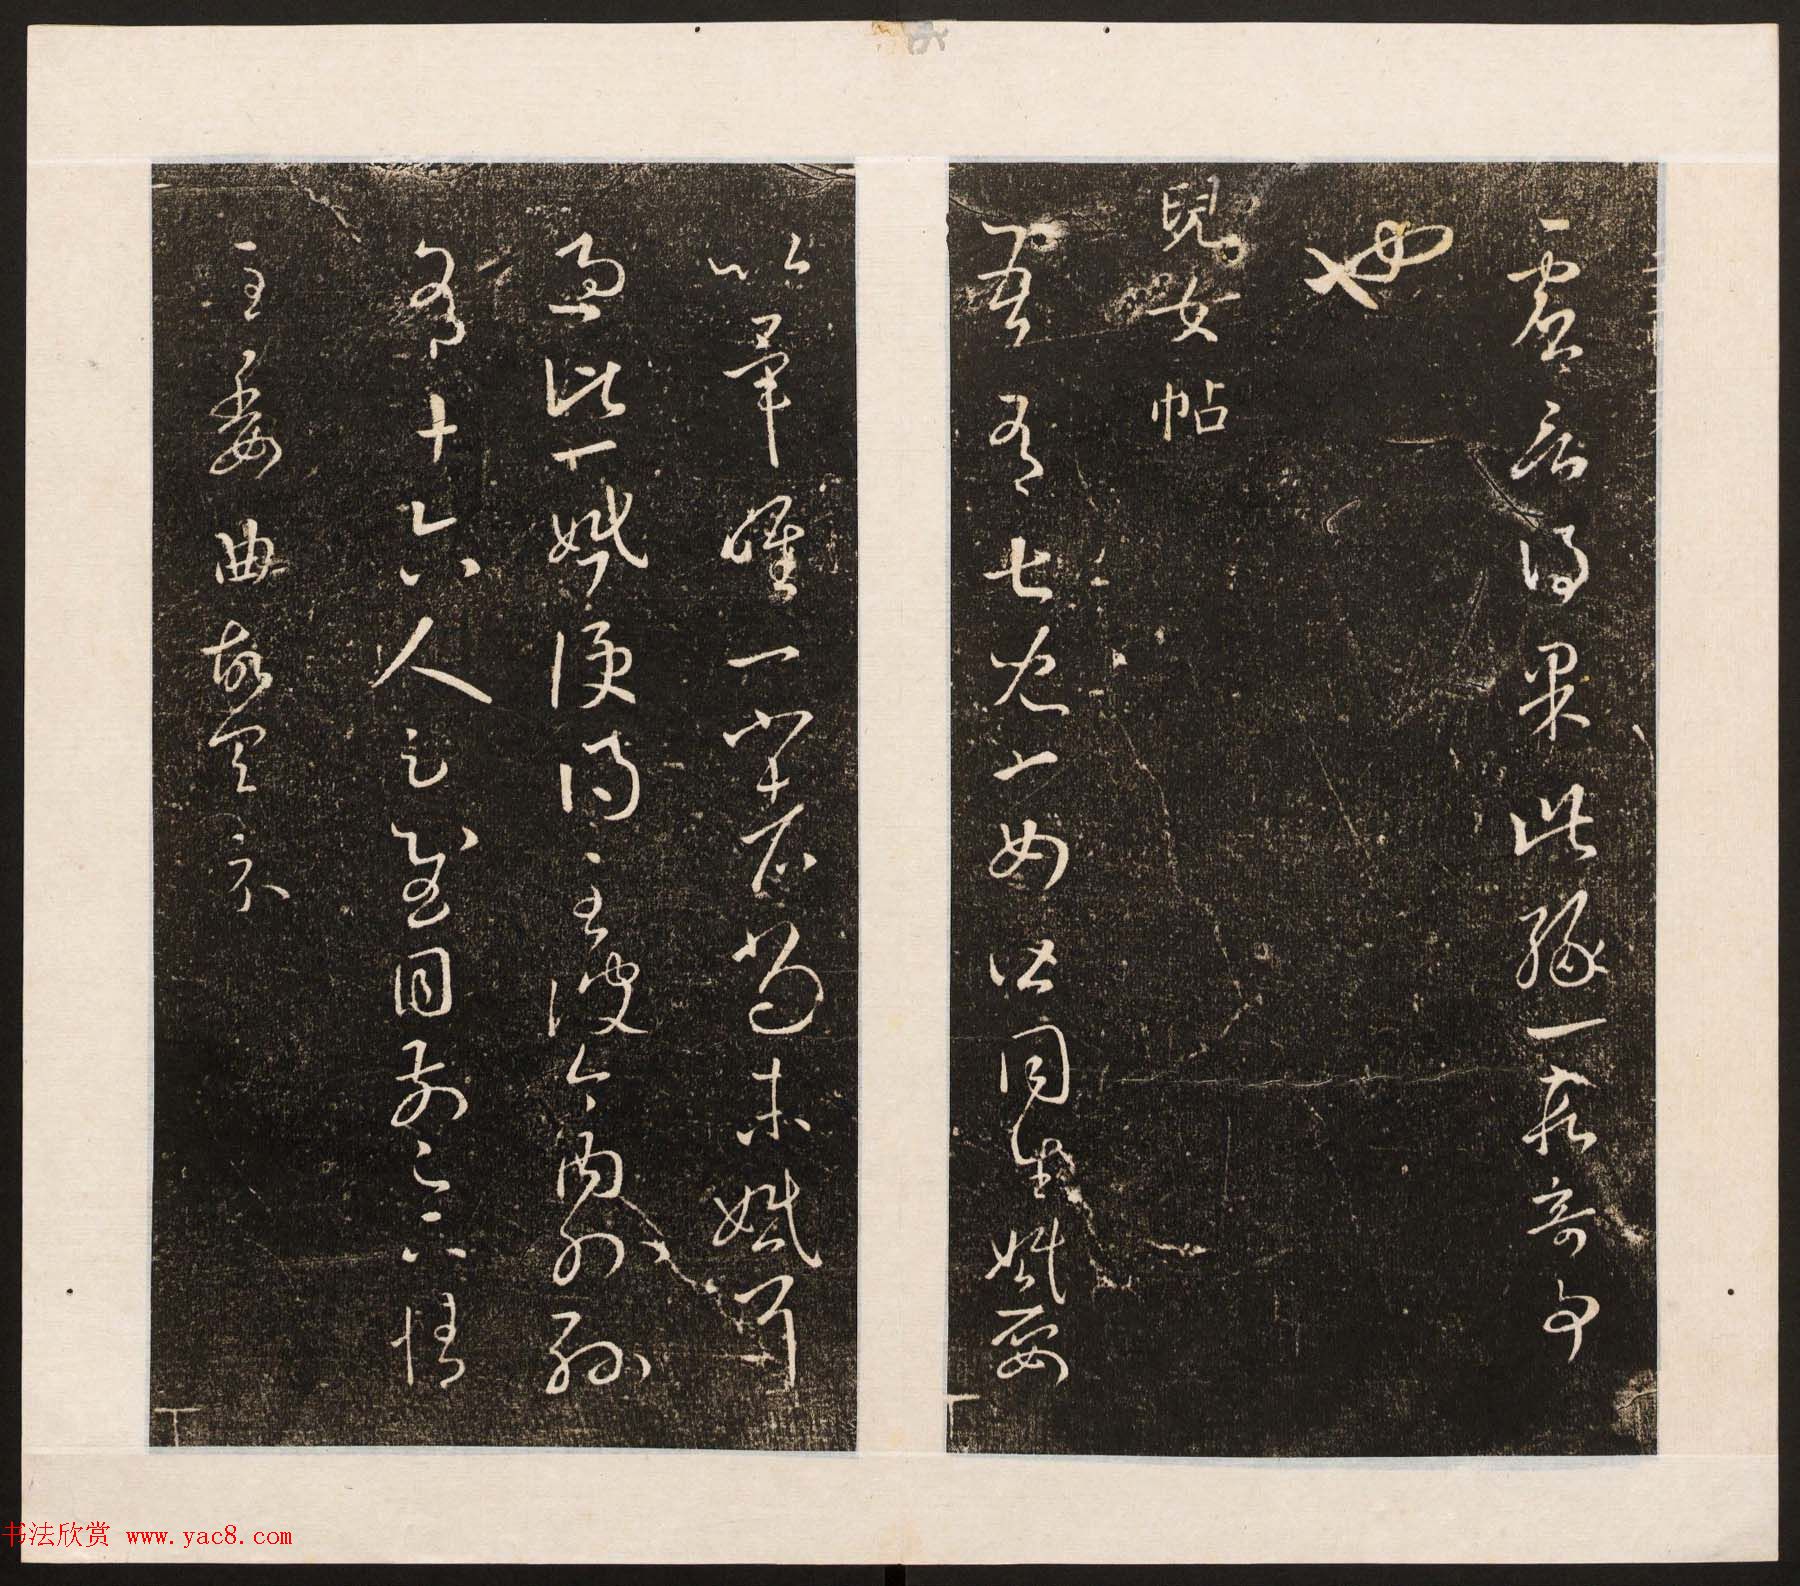 虛言得果此緣一段奇事
也
兒女帖
吾有七兒一女皆同生婚娶
以畢唯一小者尚未婚耳
過此一婚便得至彼今內外孫
有十六人足慰目前足下情
至委曲故具示
书法欣赏 www.yac8.com